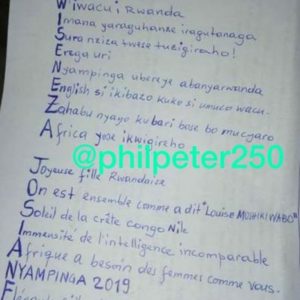 Wiwacu i Rwanda
Imana yaraguhanze iragutanaga
Sura nziza twese tuzigireho!
Erega uri
Nyampinga ubereye abanyarwanda
English si ikibazo kuko si umuco wacu.
Zahabu nyayo kubari bose bo mucyaro
Africa yose ikwigireho
@philpeter250
Joyeuse fille Rwandaise
On est ensemble comme a dit "Louise MUSHIKIWABO"
Soleil de la crête congo Nile
Immensité de l'intelligence incomparable
Afrique a besoin des femmes comme vous.
NYAMPINGA 2019